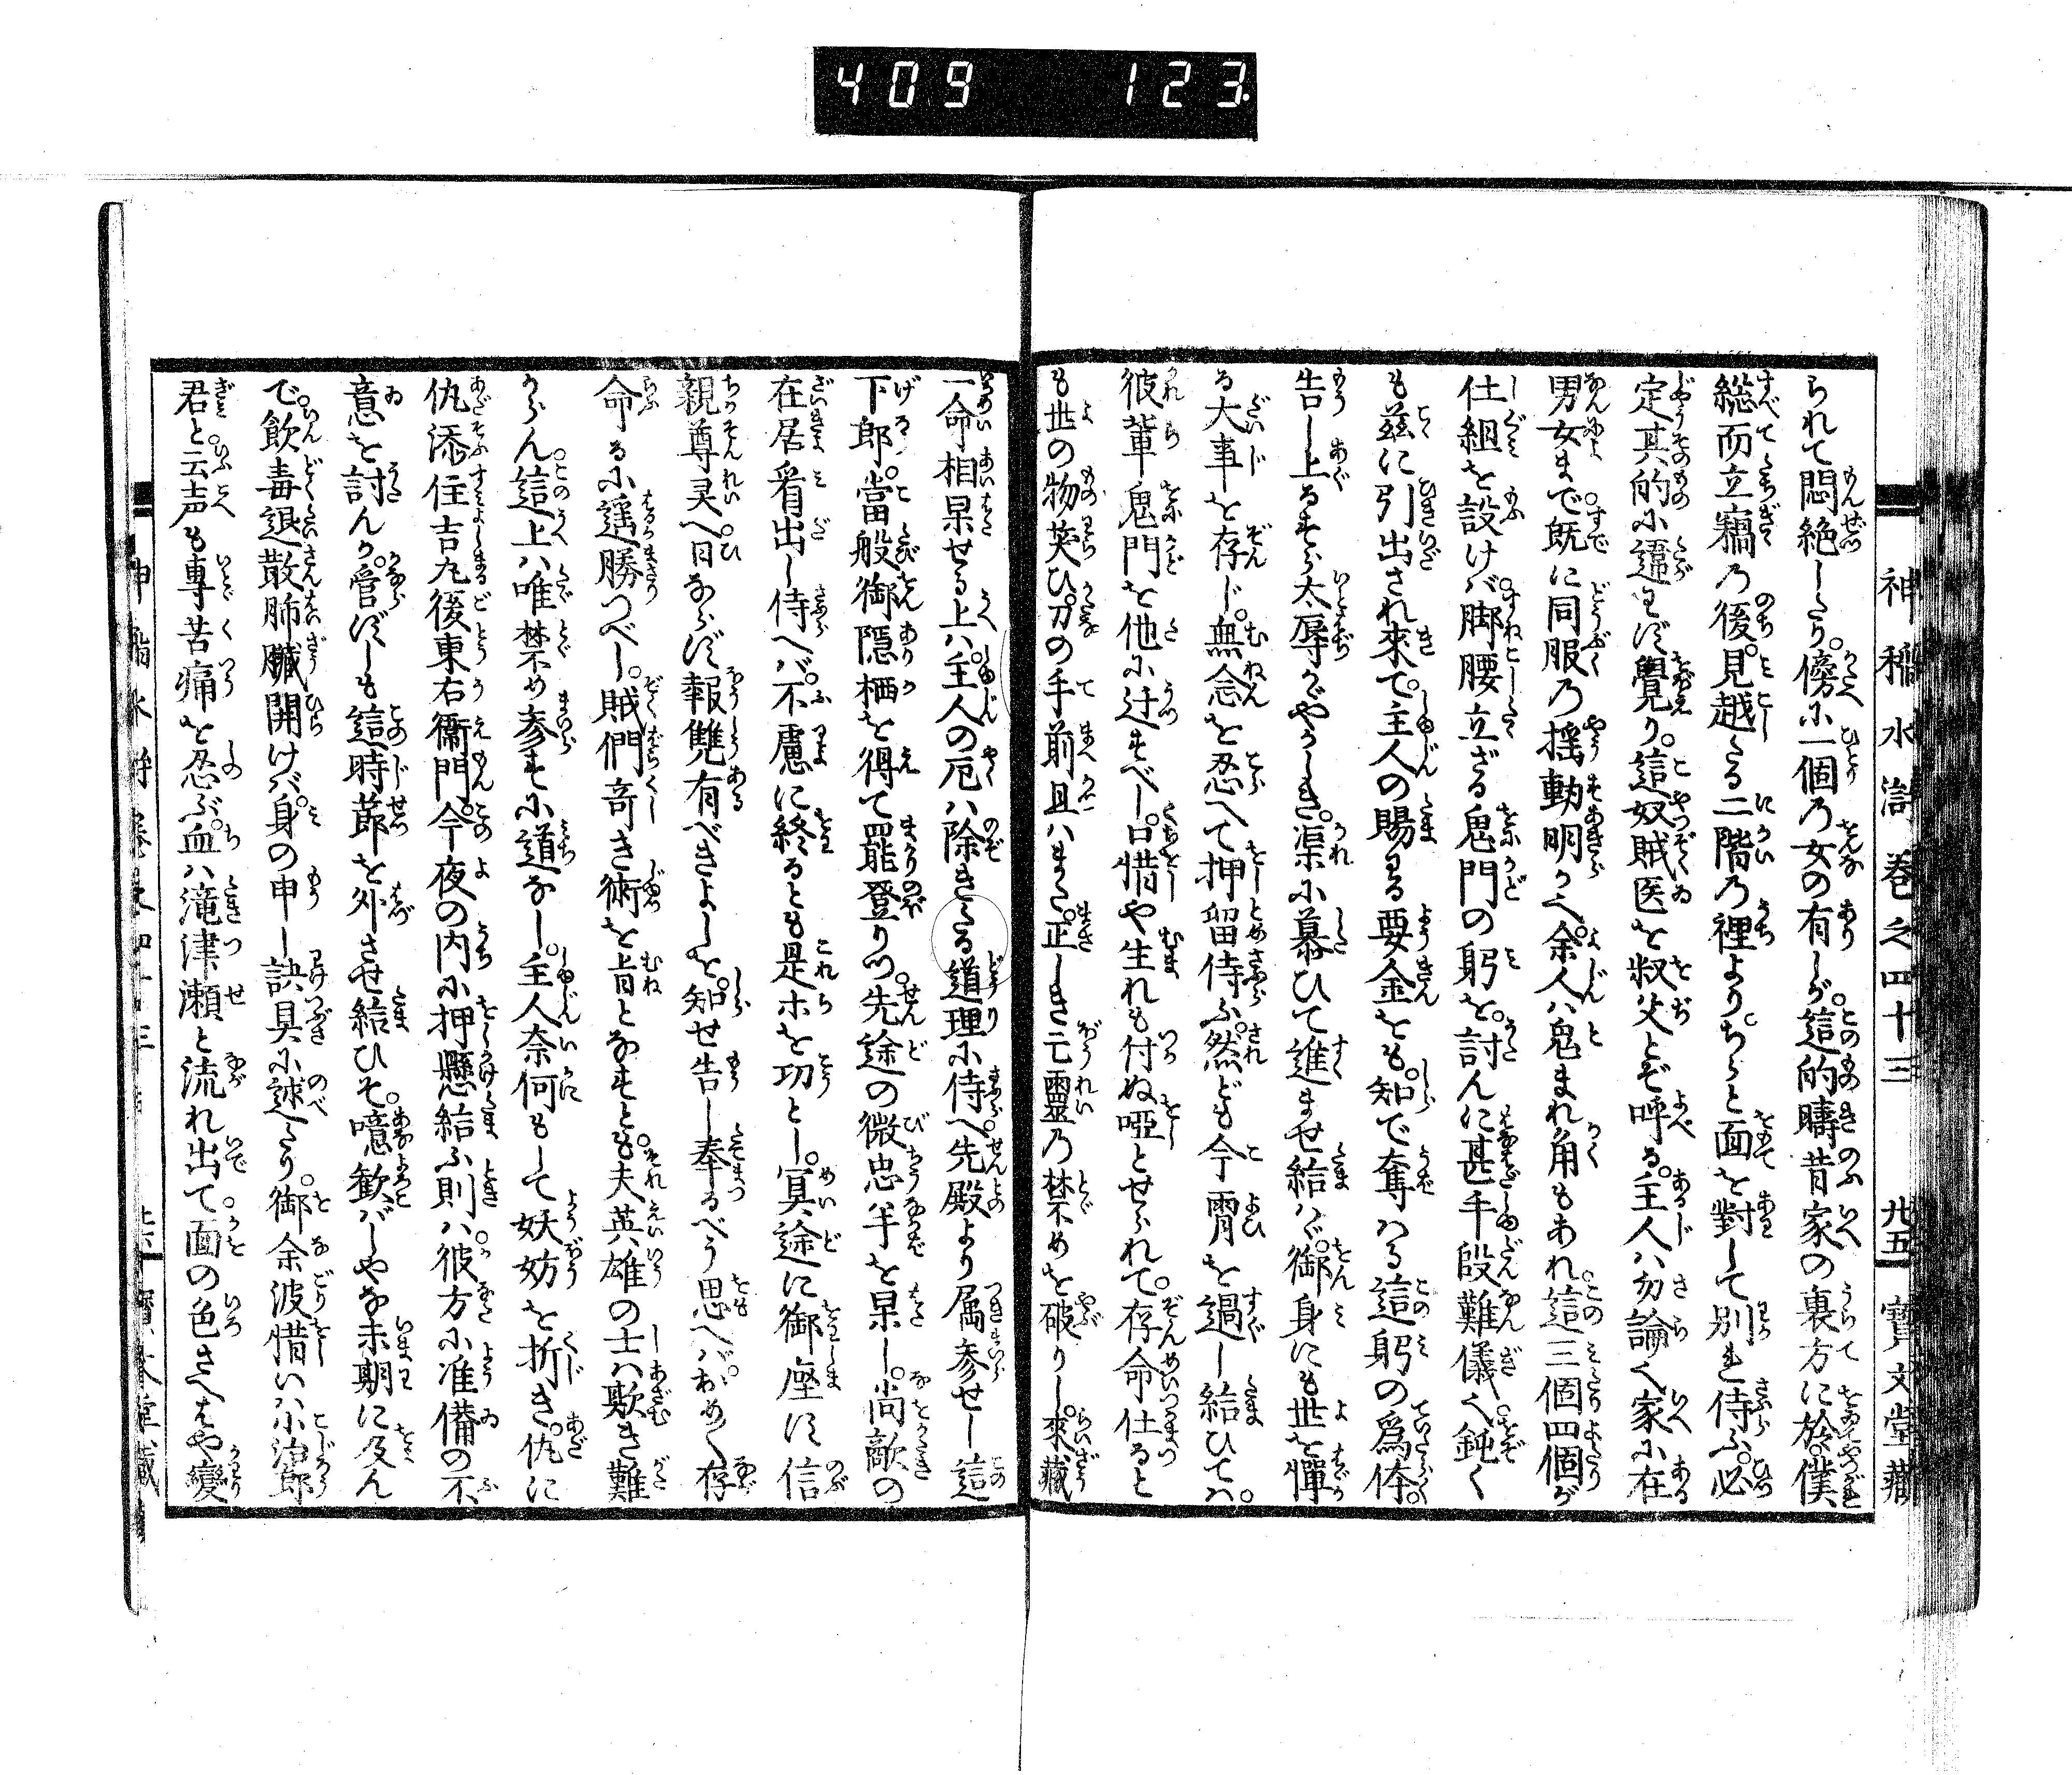 409 123
神稲水滸巻之四十三 廿五 寳文堂藏
られて悶絶したり。傍に一個の女の有しが。這的疇昔家の裏方に於。僕
総而立竊の後。見越たる二階の裡より。ちらと面を對して別れ侍ふ。必
定其的に違はず覺り。這奴賊医を叔父とぞ呼る。主人ハ勿論家に在
男女まで。既に同服の揺動明らへ。余人ハ鬼まれ角もあれ。這三個四個が
仕組を設けバ。脚腰立ざる鬼門の躬を。討んに甚手段難儀く。鈍く
も茲に引出され來て。主人の賜はる要金をも。知で奪はる這躬の爲体。
告し上るすら太辱がやらしき。渠に慕ひて進ませ結ハヾ。御身にも世を憚
る大事を存じ。無念を忍へて押留侍ふ。然ども今宵を過し結ひてハ。
彼輩鬼門を他に辻すべし。口惜や生れも付ぬ啞とせられて。存命仕ると
も世の物笑ひ。刀の手前且ハまた。正しき亡靈の禁めを破りし。來藏
一命相果せる上ハ。主人の厄ハ除きたる道理に侍へ。先殿より属参せし這
下郎。當般御隠栖を得て罷登りつ。先途の微忠半を果し。尚敵の
在居看出し侍へバ。不慮に終るとも是ホを功とし。冥途に御座に信
親尊灵へ。日ならず報讐有べきよしを。知せ告し奉るべう思へバ。おめく存
命るに遥勝つべし。賊們奇き術を旨となすとも。夫英雄の士ハ欺き難
からん。這上ハ唯禁め参すに道なし。主人奈何もして妖妨を折き。仇に
仇添住吉九後東右衞門。今夜の内に押懸結ふ則ハ。彼方に准備の不
意を討んか。管ずしも這時節を外させ結ひそ。噫歓ばしやな未期に及ん
で。飲毒退散肺臓開けバ。身の申し訣具に述たり。御余波惜いハ小治郎
君と。云声も專苦痛を忍ぶ。血ハ滝津瀬と流れ出て。面の色さへはや變